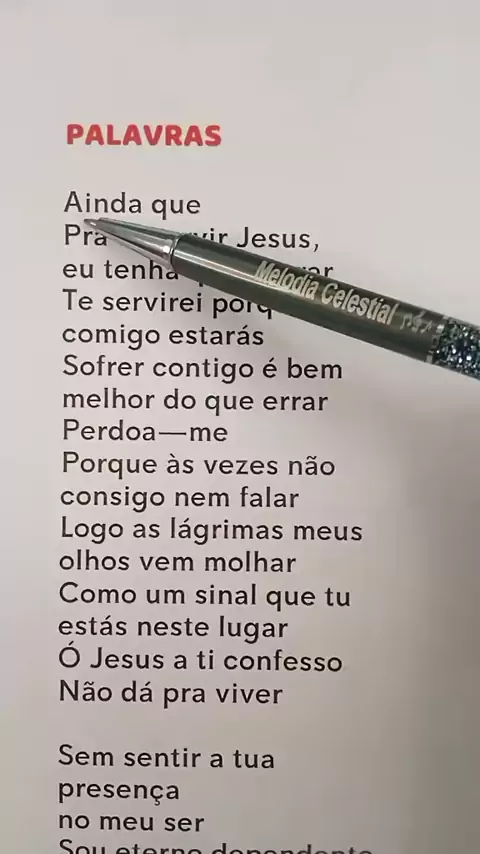 PALAVRAS
Ainda que
Pra Jesus,
eu tenha
Te servirei
comigo estarás
Sofrer contigo é bem
melhor do que errar
Perdoa—me
Porque às vezes não
consigo nem falar
Logo as lágrimas meus
olhos vem molhar
Como um sinal que tu
estás neste lugar
Ó Jesus a ti confesso
Não dá pra viver
Sem sentir a tua
presença
no meu ser
Sou eterno dependente
Melodia Celestial